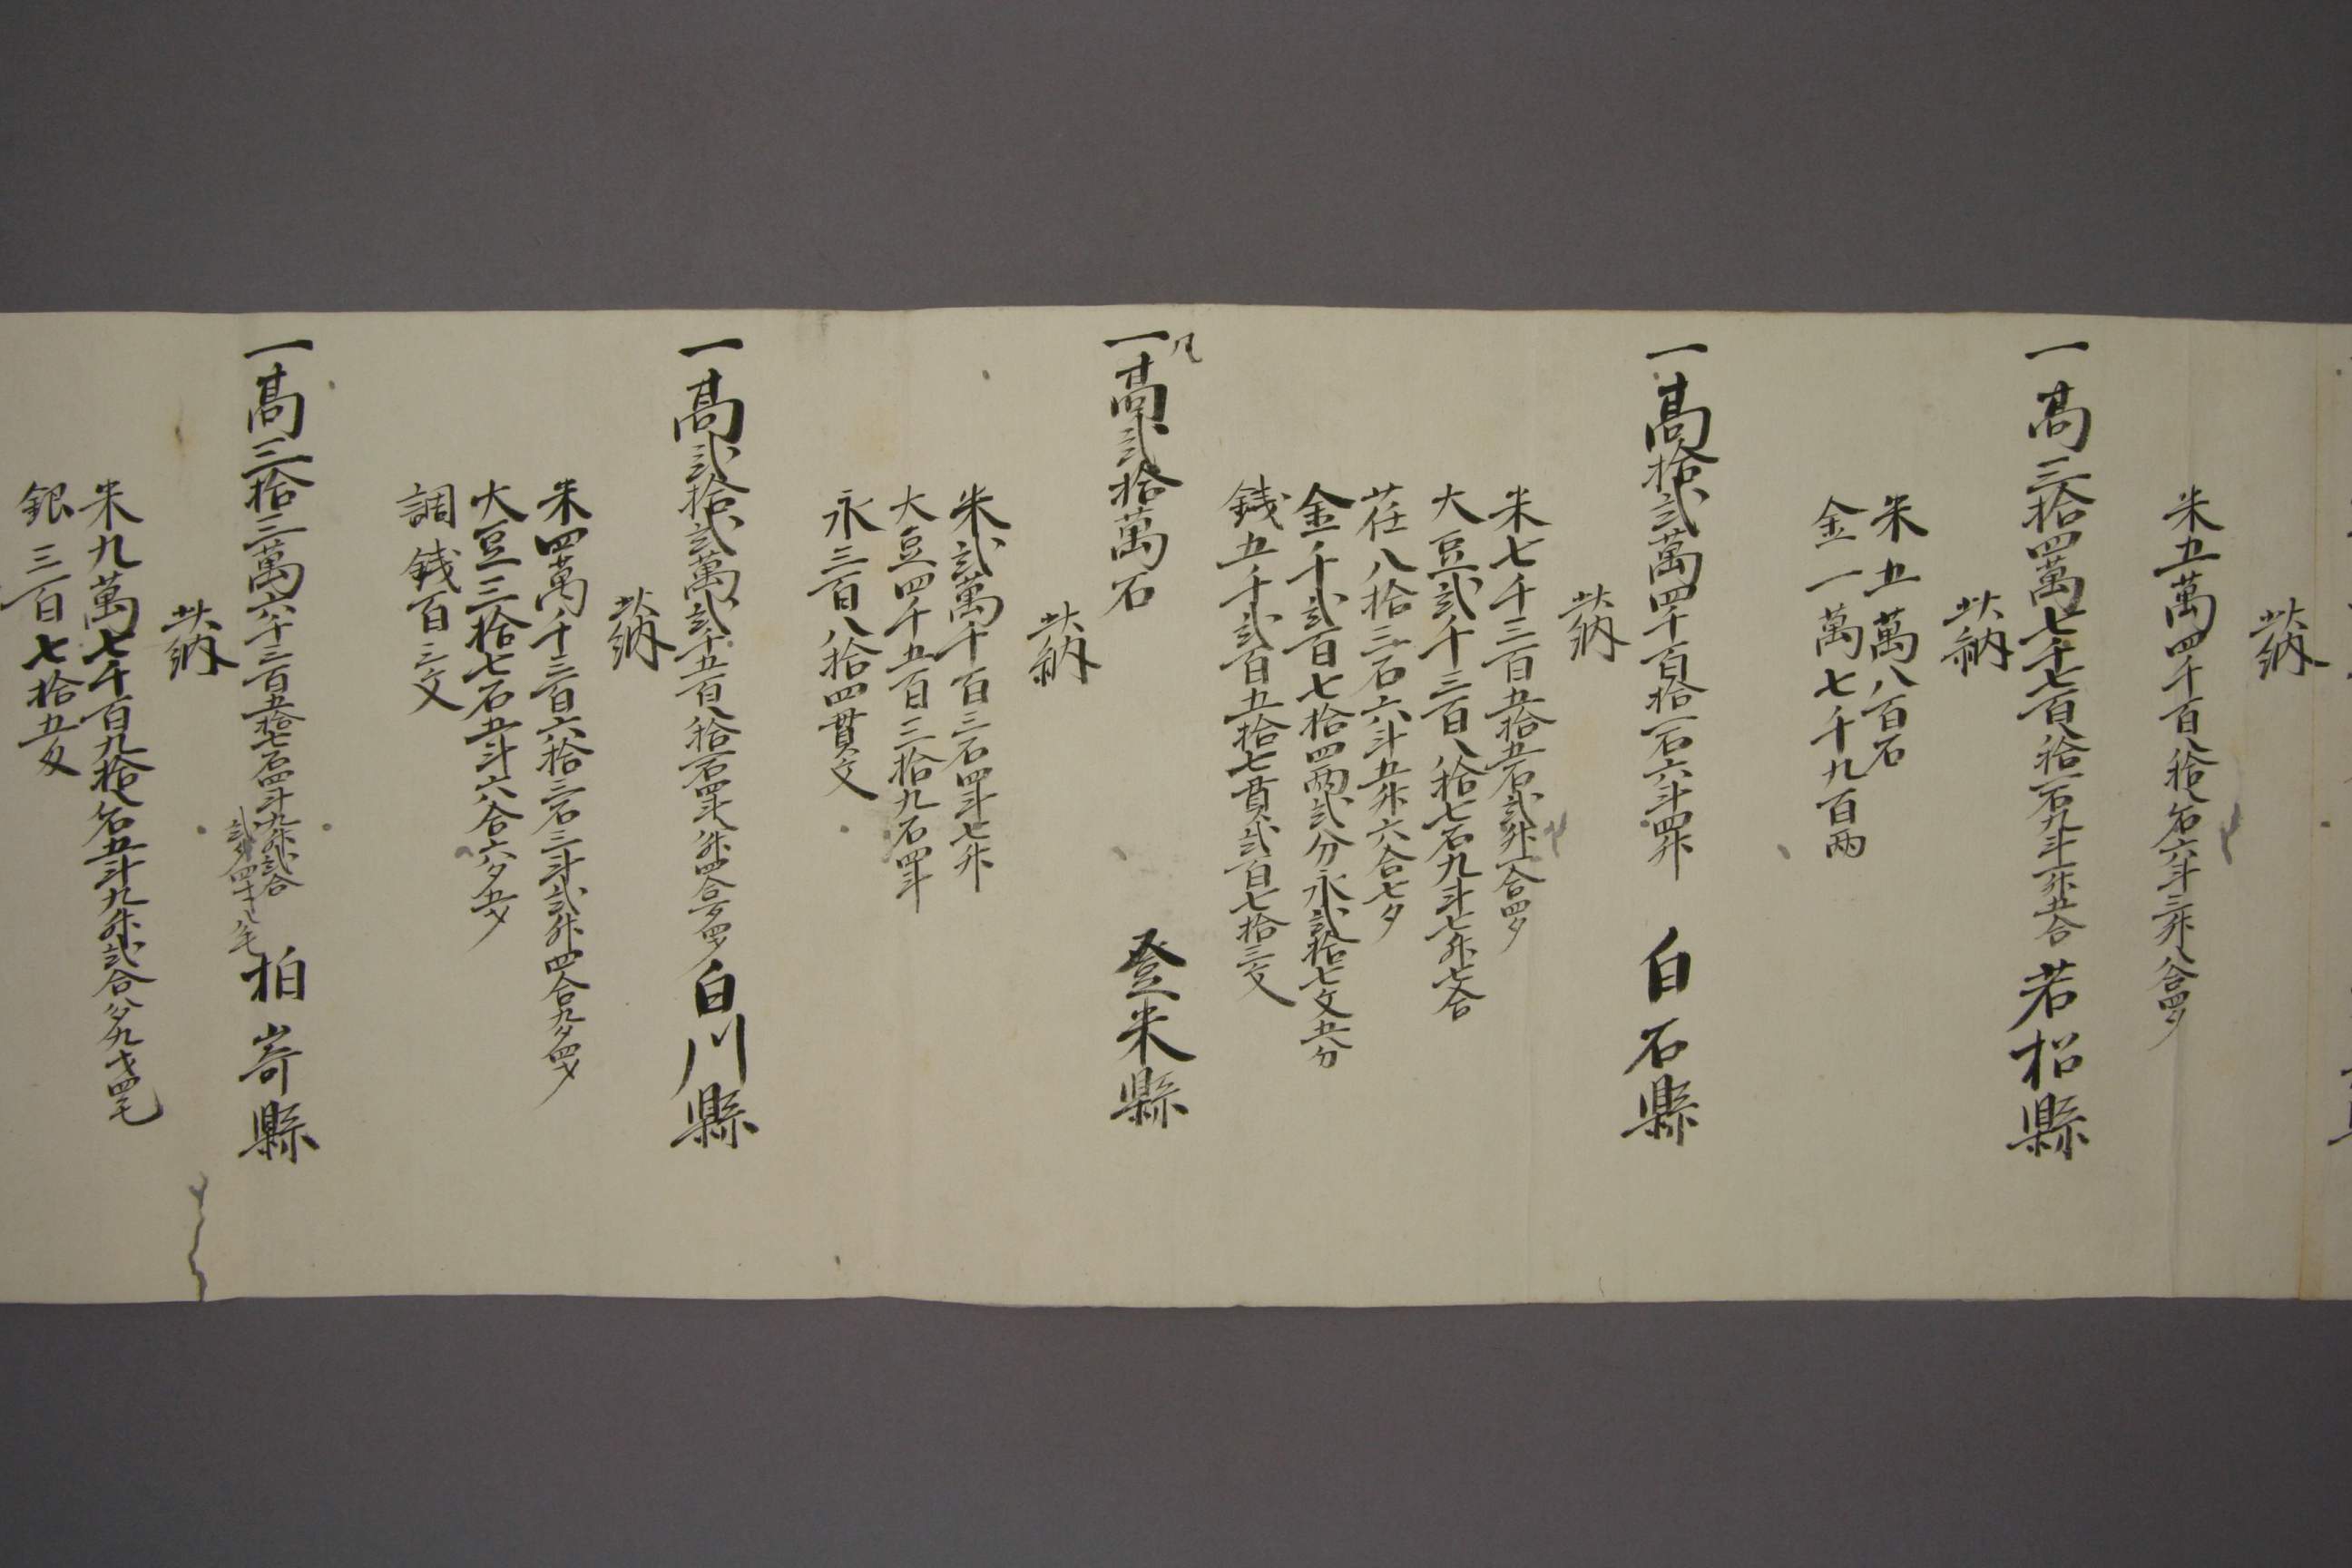 此納
米五萬四千百八拾八石六斗三升八合四夕
一高三拾四萬七千七百八拾一石九斗一升五合 若松縣
此納
米五萬八百石
金一萬七千九百両
一高拾貳萬四千百拾一石六斗四升 白石縣
此納
米七千三百五拾五石貳升一合四夕
大豆貳千三百八拾七石九斗七升七合
荏八拾三石六斗五升六合七夕
金千貳百七拾四両貳分永貳拾七文五分
銭五千貳百五拾七貫貳百七拾三文
凡
一高貳拾萬石 登米縣
此納
米貳萬千百三石四斗七升
大豆四千五百三拾九石四斗
永三百八拾四貫文
一高貳拾貳萬貳千五百八拾一石四斗八升四合一夕四才 白川縣
此納
米四萬千三百六拾二石三斗貳升四合九夕四才
大豆三拾七石五斗六合六夕五才
調銭百三文
一高三拾三萬六千三百五拾七石四斗九升貳合貳夕四才八毛 柏嵜縣
此納
米九萬七千百九拾八石五斗九升貳合八夕九才四毛
銀三百七拾五匁